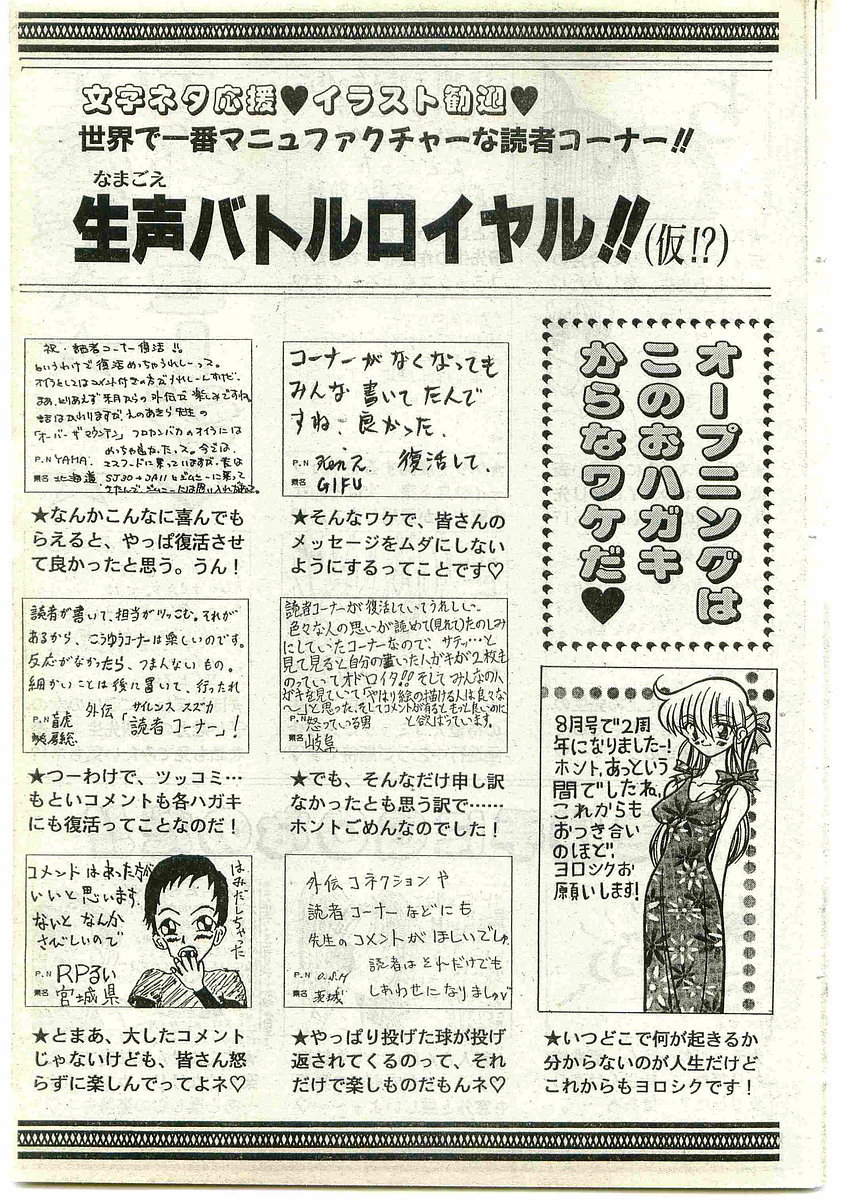 文字ネタ応援♥イラスト歓迎♥
世界で一番マニュファクチャーな読者コーナー!!
なまごえ
生声バトルロイヤル!!(仮!?)
オープニングは
このおハガキ
からなワケだ♥
コーナーがなくなっても
みんな書いてたんで
すね、良かった、
復活して、
P.N
県名 GIFU
★そんなワケで、皆さんの
メッセージをムダにしない
ようにするってことです♡
祝・読者コーナー復活!!
というわけで復活めっちゃうれしーって。
オイラとしてはコメント付きの方がうれしーんすけど。
まあ、とりあえず来月からの外伝が楽しみですね。
話はかわりますが、えのあきら先生の
「オーバーザマウンテン」
P.N YAMA.
県名 北海道
★なんかこんなに喜んでも
らえると、やっぱ復活させ
て良かったと思う。うん!
8月号で2周
年になりましたー!
ホント、あっという
間でしたね、
これからも
おつき合い
のほど、
ヨロシクお
願いします!
★いつどこで何が起きるか
分からないのが人生だけど
これからもヨロシクです!
読者コーナーが復活していてうれしい〜。
色々な人の思いが読めて(見れて)たのしみ
にしていたコーナーなので、サテッ…と
見て見ると自分の書いたハガキが2枚も
のっていてオドロイタ!!そしてみんなのハ
ガキを見ていて「やはり絵の描ける人は良々な
〜」と思った、そしてコメントが有るともっと良いのに
と欲ばっています。
P.N 怒っている男
県名 岐阜
★でも、そんなだけ申し訳
なかったとも思う訳で……
ホントごめんなのでした!
読者が書いて、担当がツッこむ。それが
あるから、こうゆうコーナーは楽しいのです。
反応がなかったら、つまんないもの。
細かいことは後に置いて、行ったれ
外伝 サイレンス スズカ
「読者コーナー」!
P.N 盲虎
県名
★つーわけで、ツッコミ…
もといコメントも各ハガキ
にも復活ってことなのだ!
外伝コネクションや
読者コーナーなどにも
先生のコメントがほしいでしゅ。
読者はそれだけでも
しあわせになりましゅ♡
P.N O.S.H
県名 茨城
★やっぱり投げた球が投げ
返されてくるのって、それ
だけで楽しものだもんネ♡
コメントはあった方が
いいと思います。
ないとなんか
さびしいので
はみだしちゃった
P.N RPるい
県名 宮城県
★とまあ、大したコメント
じゃないけども、皆さん怒
らずに楽しんでってよネ♡